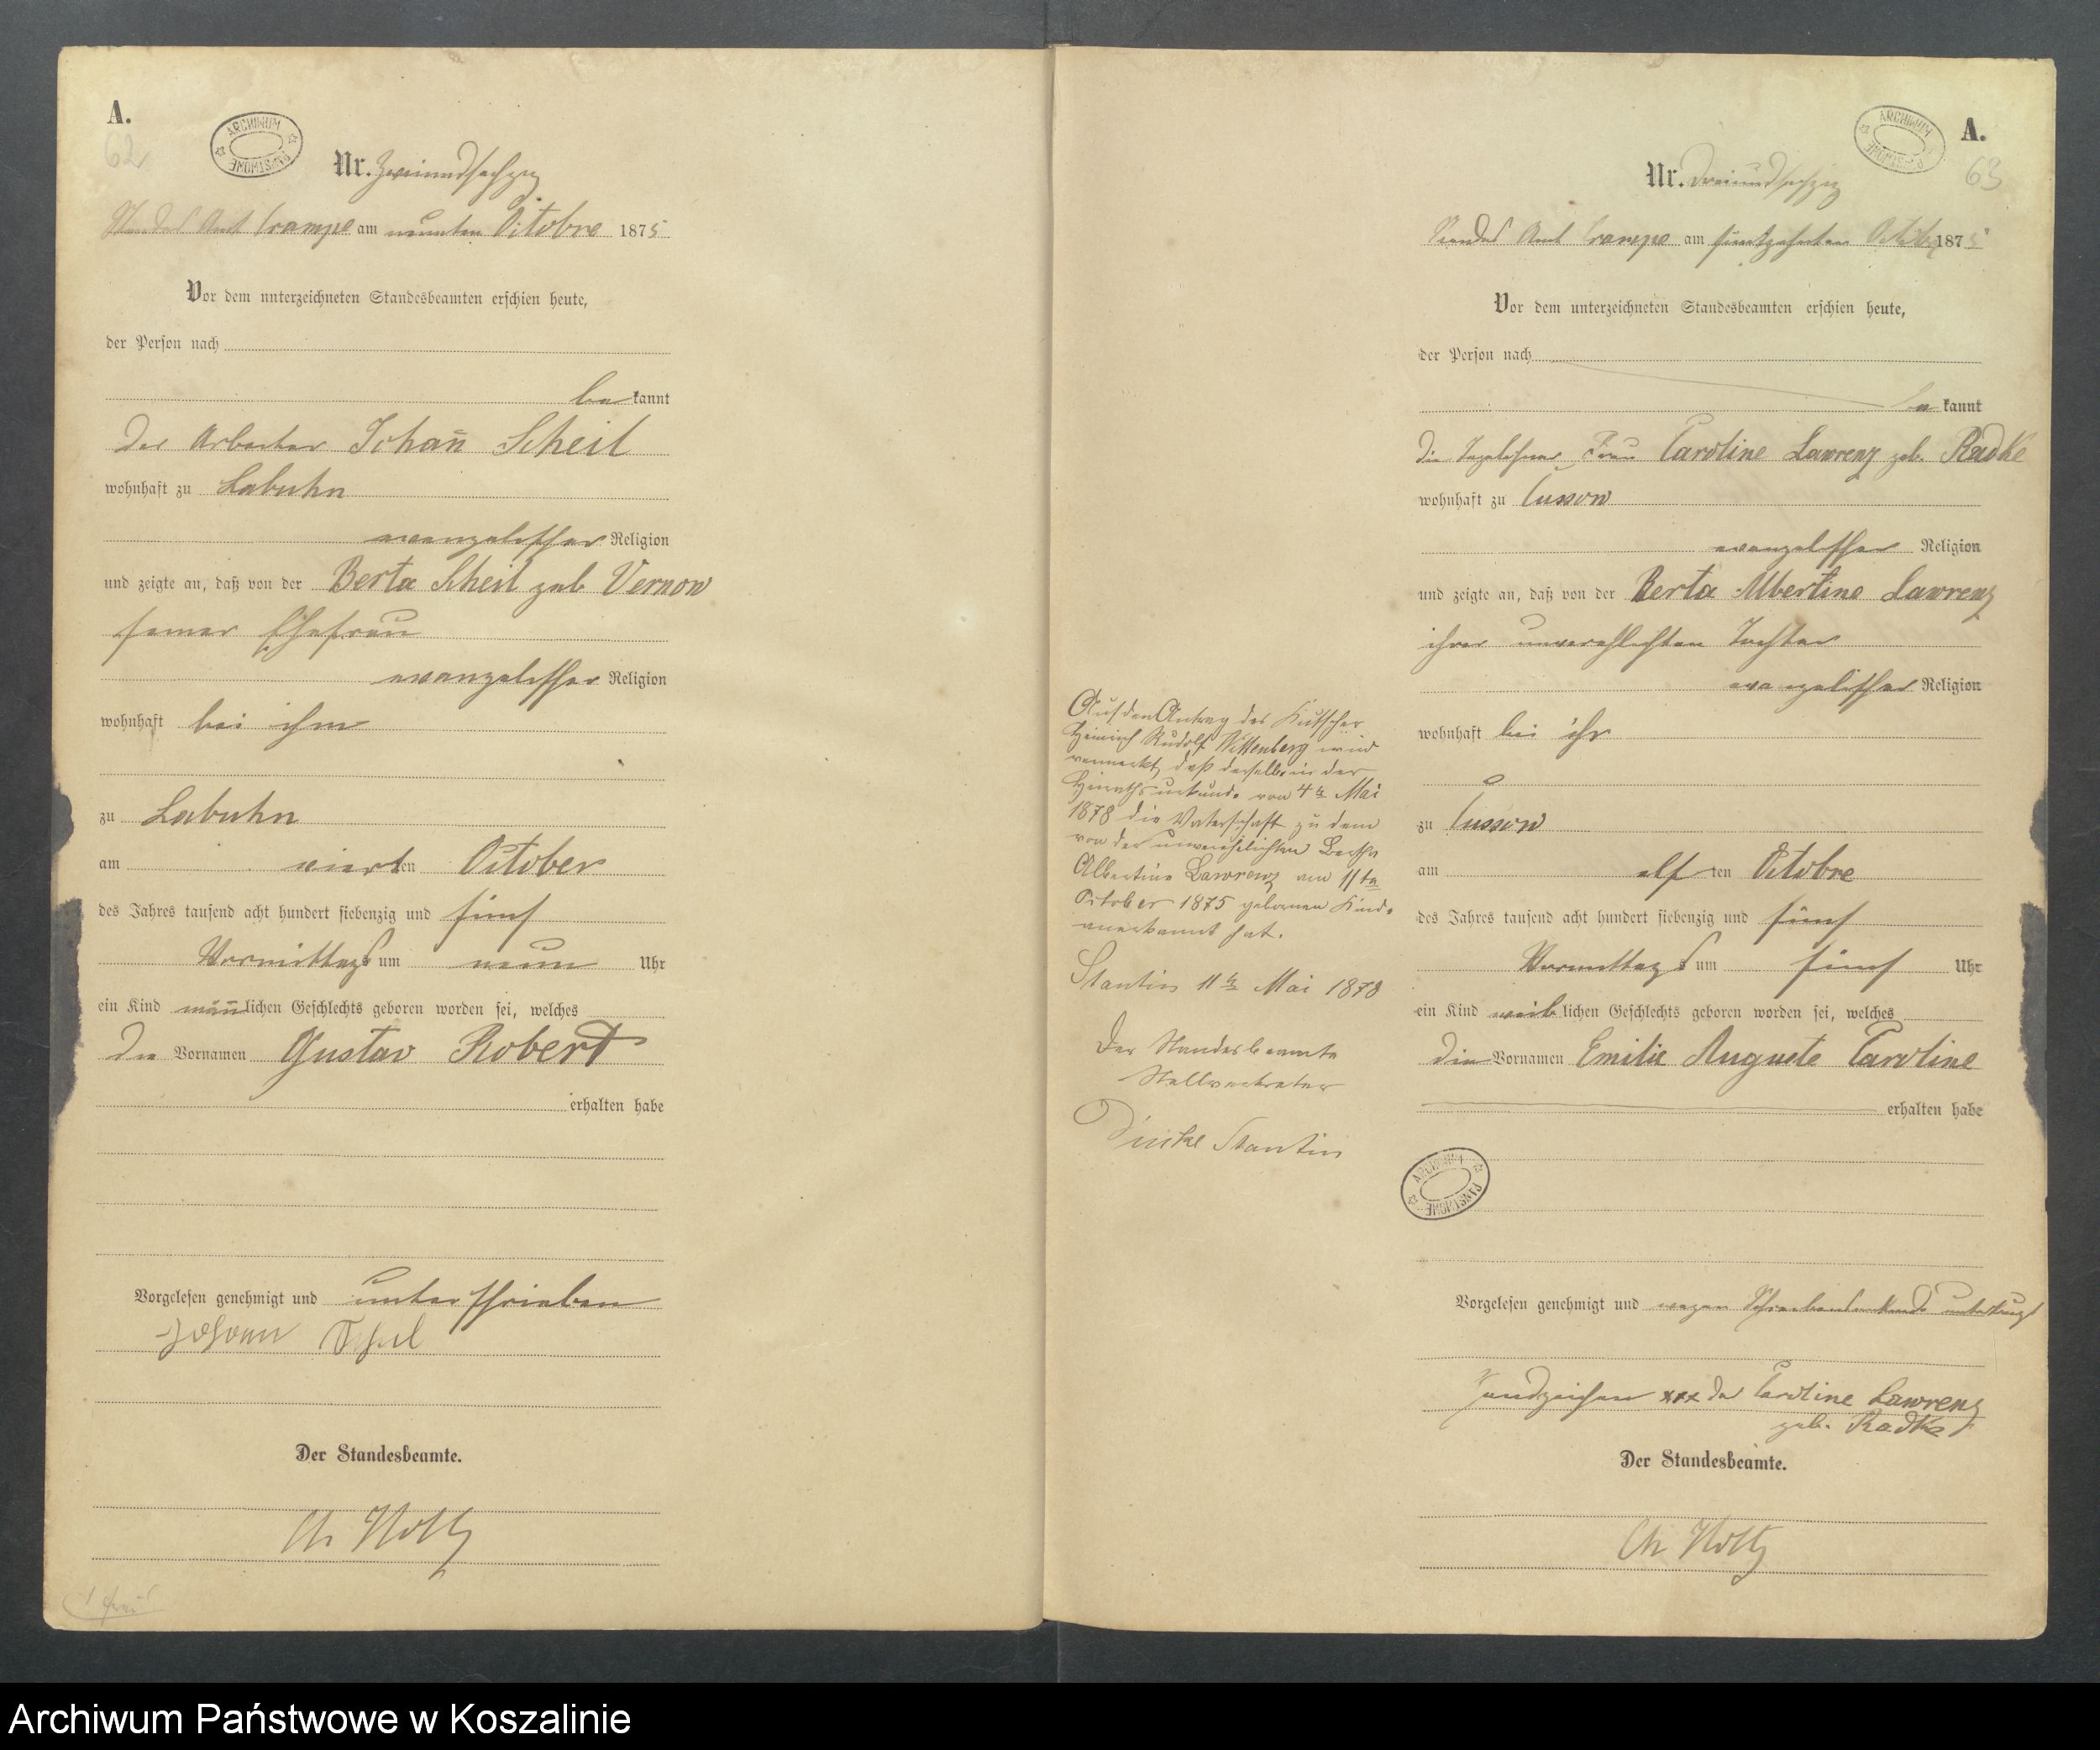 A.
62
ARCHIWUM PAŃSTWOWE
Nr. Zweiundsechzig
Standes Amt Crampe am neunten Octobre 1875
Vor dem unterzeichneten Standesbeamten erschien heute,
der Person nach
be kannt
Der Arbeiter Johan̄ Scheil
wohnhaft zu Labuhn
evangelischer Religion
und zeigte an, daß von der Berta Scheil geb Vernow
seiner Ehefrau
evangelischer Religion
wohnhaft bei ihm
zu Labuhn
am vierten October
des Jahres tausend acht hundert siebenzig und fünf
Vormittags um neun Uhr
ein Kind män̄lichen Geschlechts geboren worden sei, welches
die Vornamen Gustav Robert
erhalten habe
Vorgelesen genehmigt und unterschrieben
Johann
Der Standesbeamte.
Ch Holtz
Auf den Antrag des Kutscher
Heinrich Rudolf Wittenberg wird
vermerkt, daß derselbe in der
Heirathsurkunde vom 4ten Mai
1878 die Vaterschaft zu dem
von der unverehelichten Bertha
Albertine Lawrenz am 11ten
October 1875 geborenen Kinde
anerkannt hat.
Stantin 11ten Mai 1878
Der Standesbeamte
Stellvertreter
Stantin
A.
63
ARCHIWUM PAŃSTWOWE
Nr. Dreiundsechzig
Standes Amt Crampe am fünfzehnten October 1875
Vor dem unterzeichneten Standesbeamten erschien heute,
der Person nach
be kannt
Die Tagelöhner Frau Caroline Lawrenz geb. Radke
wohnhaft zu Cussow
evangelischer Religion
und zeigte an, daß von der Berta Albertine Lawrenz
ihrer unverehlichten Tochter
evangelischer Religion
wohnhaft bei ihr
zu Cussow
am elf ten Octobre
des Jahres tausend acht hundert siebenzig und fünf
Vormittags um fünf Uhr
ein Kind weiblichen Geschlechts geboren worden sei, welches
die Vornamen Emilie Auguste Caroline
erhalten habe
ARCHIWUM PAŃSTWOWE
Vorgelesen genehmigt und wegen Schreibensunkunde unterkreuzt
Handzeichen xxx der Caroline Lawrenz
geb. Radke
Der Standesbeamte.
Ch Holtz
Archiwum Państwowe w Koszalinie